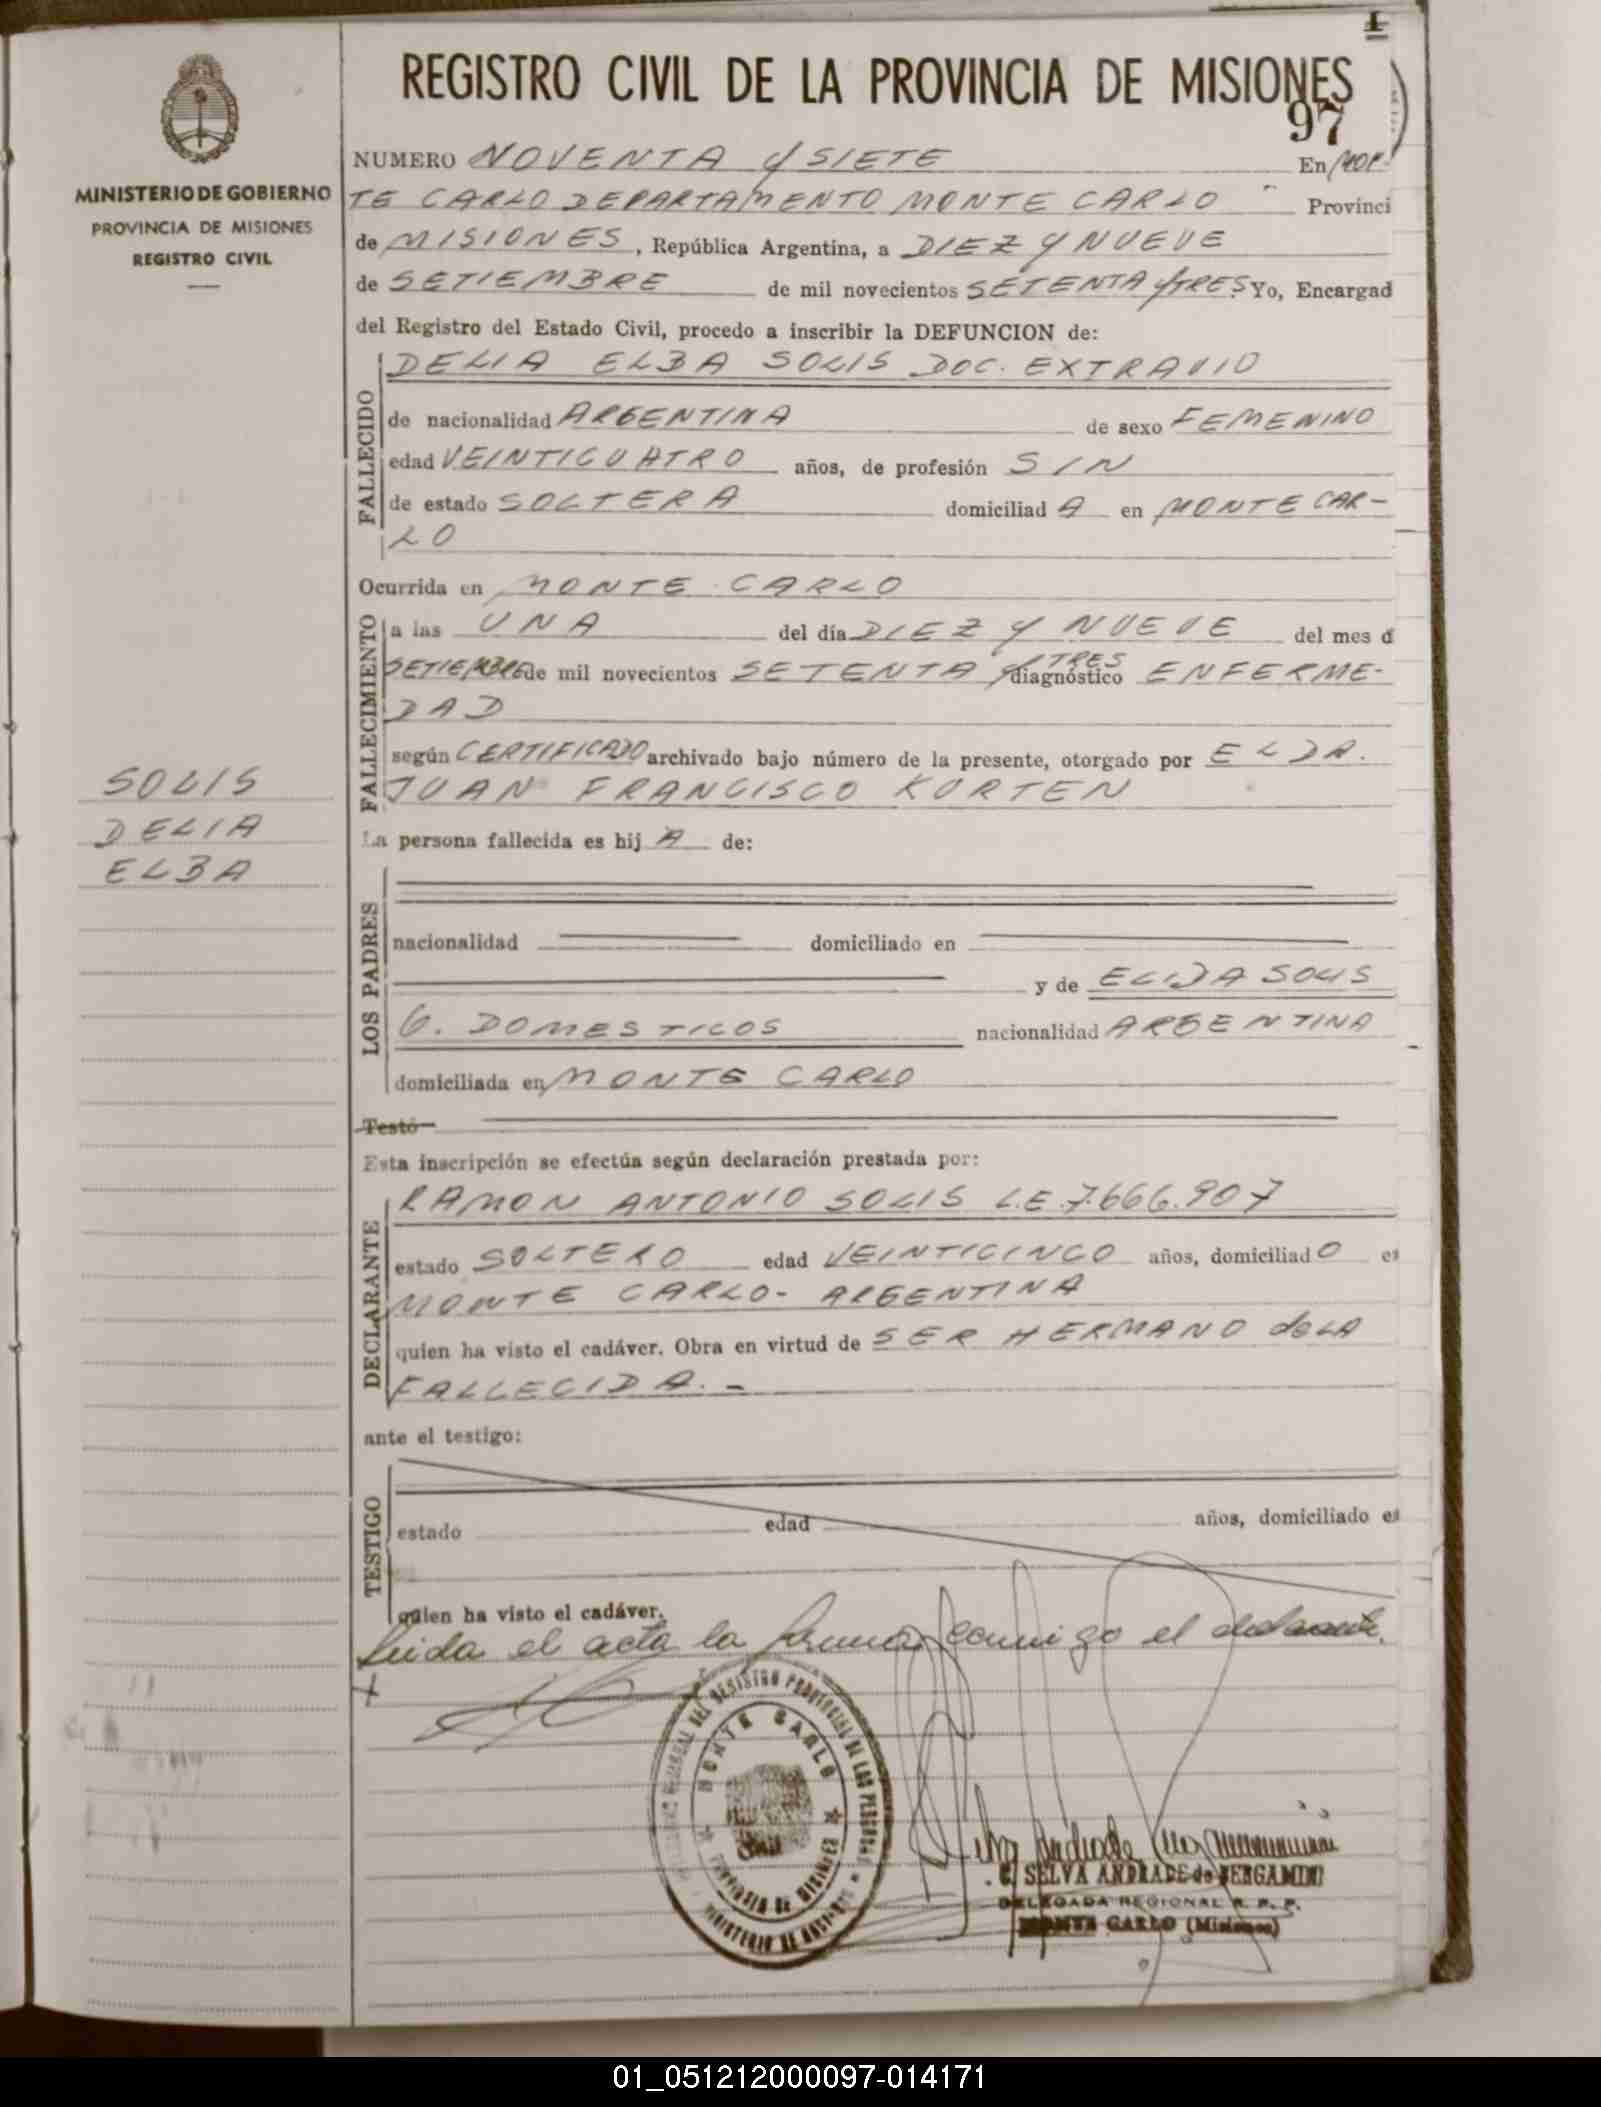 REGISTRO CIVIL DE LA PROVINCIA DE MISIONES
97
MINISTERIO DE GOBIERNO
PROVINCIA DE MISIONES
REGISTRO CIVIL
NUMERO NOVENTA y SIETE En MON-
TE CARLO DEPARTAMENTO MONTE CARLO Provinci
de MISIONES, República Argentina, a DIEZ y NUEVE
de SETIEMBRE de mil novecientos SETENTA y TRES. Yo, Encargad
del Registro del Estado Civil, procedo a inscribir la DEFUNCION de:
FALLECIDO
DELIA ELBA SOLIS DOC. EXTRAVIO
de nacionalidad ARGENTINA de sexo FEMENINO
edad VEINTICUATRO años, de profesión SIN
de estado SOLTERA domiciliad A en MONTE CAR-
LO
Ocurrida en MONTE CARLO
FALLECIMIENTO
a las UNA del día DIEZ y NUEVE del mes d
SETIEMBRE de mil novecientos SETENTA y TRES diagnóstico ENFERME-
DAD
según CERTIFICADO archivado bajo número de la presente, otorgado por EL DR.
JUAN FRANCISCO KORTEN
SOLIS
DELIA
ELBA
La persona fallecida es hij A de:
LOS PADRES
nacionalidad domiciliado en
y de ELIDA SOLIS
Q. DOMESTICOS nacionalidad ARGENTINA
domiciliada en MONTE CARLO
Testó
Esta inscripción se efectúa según declaración prestada por:
DECLARANTE
RAMON ANTONIO SOLIS L.E. 7.666.907
estado SOLTERO edad VEINTICINCO años, domiciliad O e
MONTE CARLO- ARGENTINA
quien ha visto el cadáver. Obra en virtud de SER HERMANO de LA
FALLECIDA.-
ante el testigo:
TESTIGO
estado edad años, domiciliado e
quien ha visto el cadáver.
Leida el acta la firma conmigo el declarante.
REGISTRO PROVINCIAL DE LAS PERSONAS
MONTE CARLO
PROVINCIA DE MISIONES
MINISTERIO DE GOBIERNO
C. SELVA ANDRADE de BERGAMINI
DELEGADA REGIONAL R. P. P.
MONTE CARLO (Misiones)
01_051212000097-014171